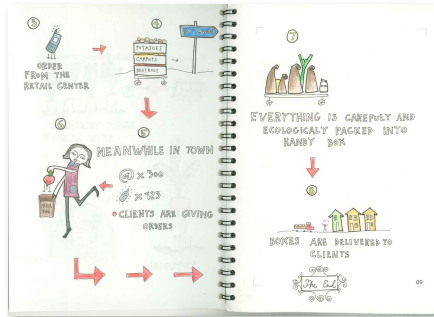 ③
④
ORDER
FROM THE
RETAIL CENTER
POTATOES
CARROTS
BEETROOT
⑥
⑤
MEANWHILE IN TOWN
@ x 300
x 123
CLIENTS ARE GIVING
ORDERS
⑦
EVERYTHING IS CAREFULY AND
ECOLOGICALY PACKED INTO
HANDY BOX
⑧
BOXES ARE DELIVERED TO
CLIENTS
The End
09